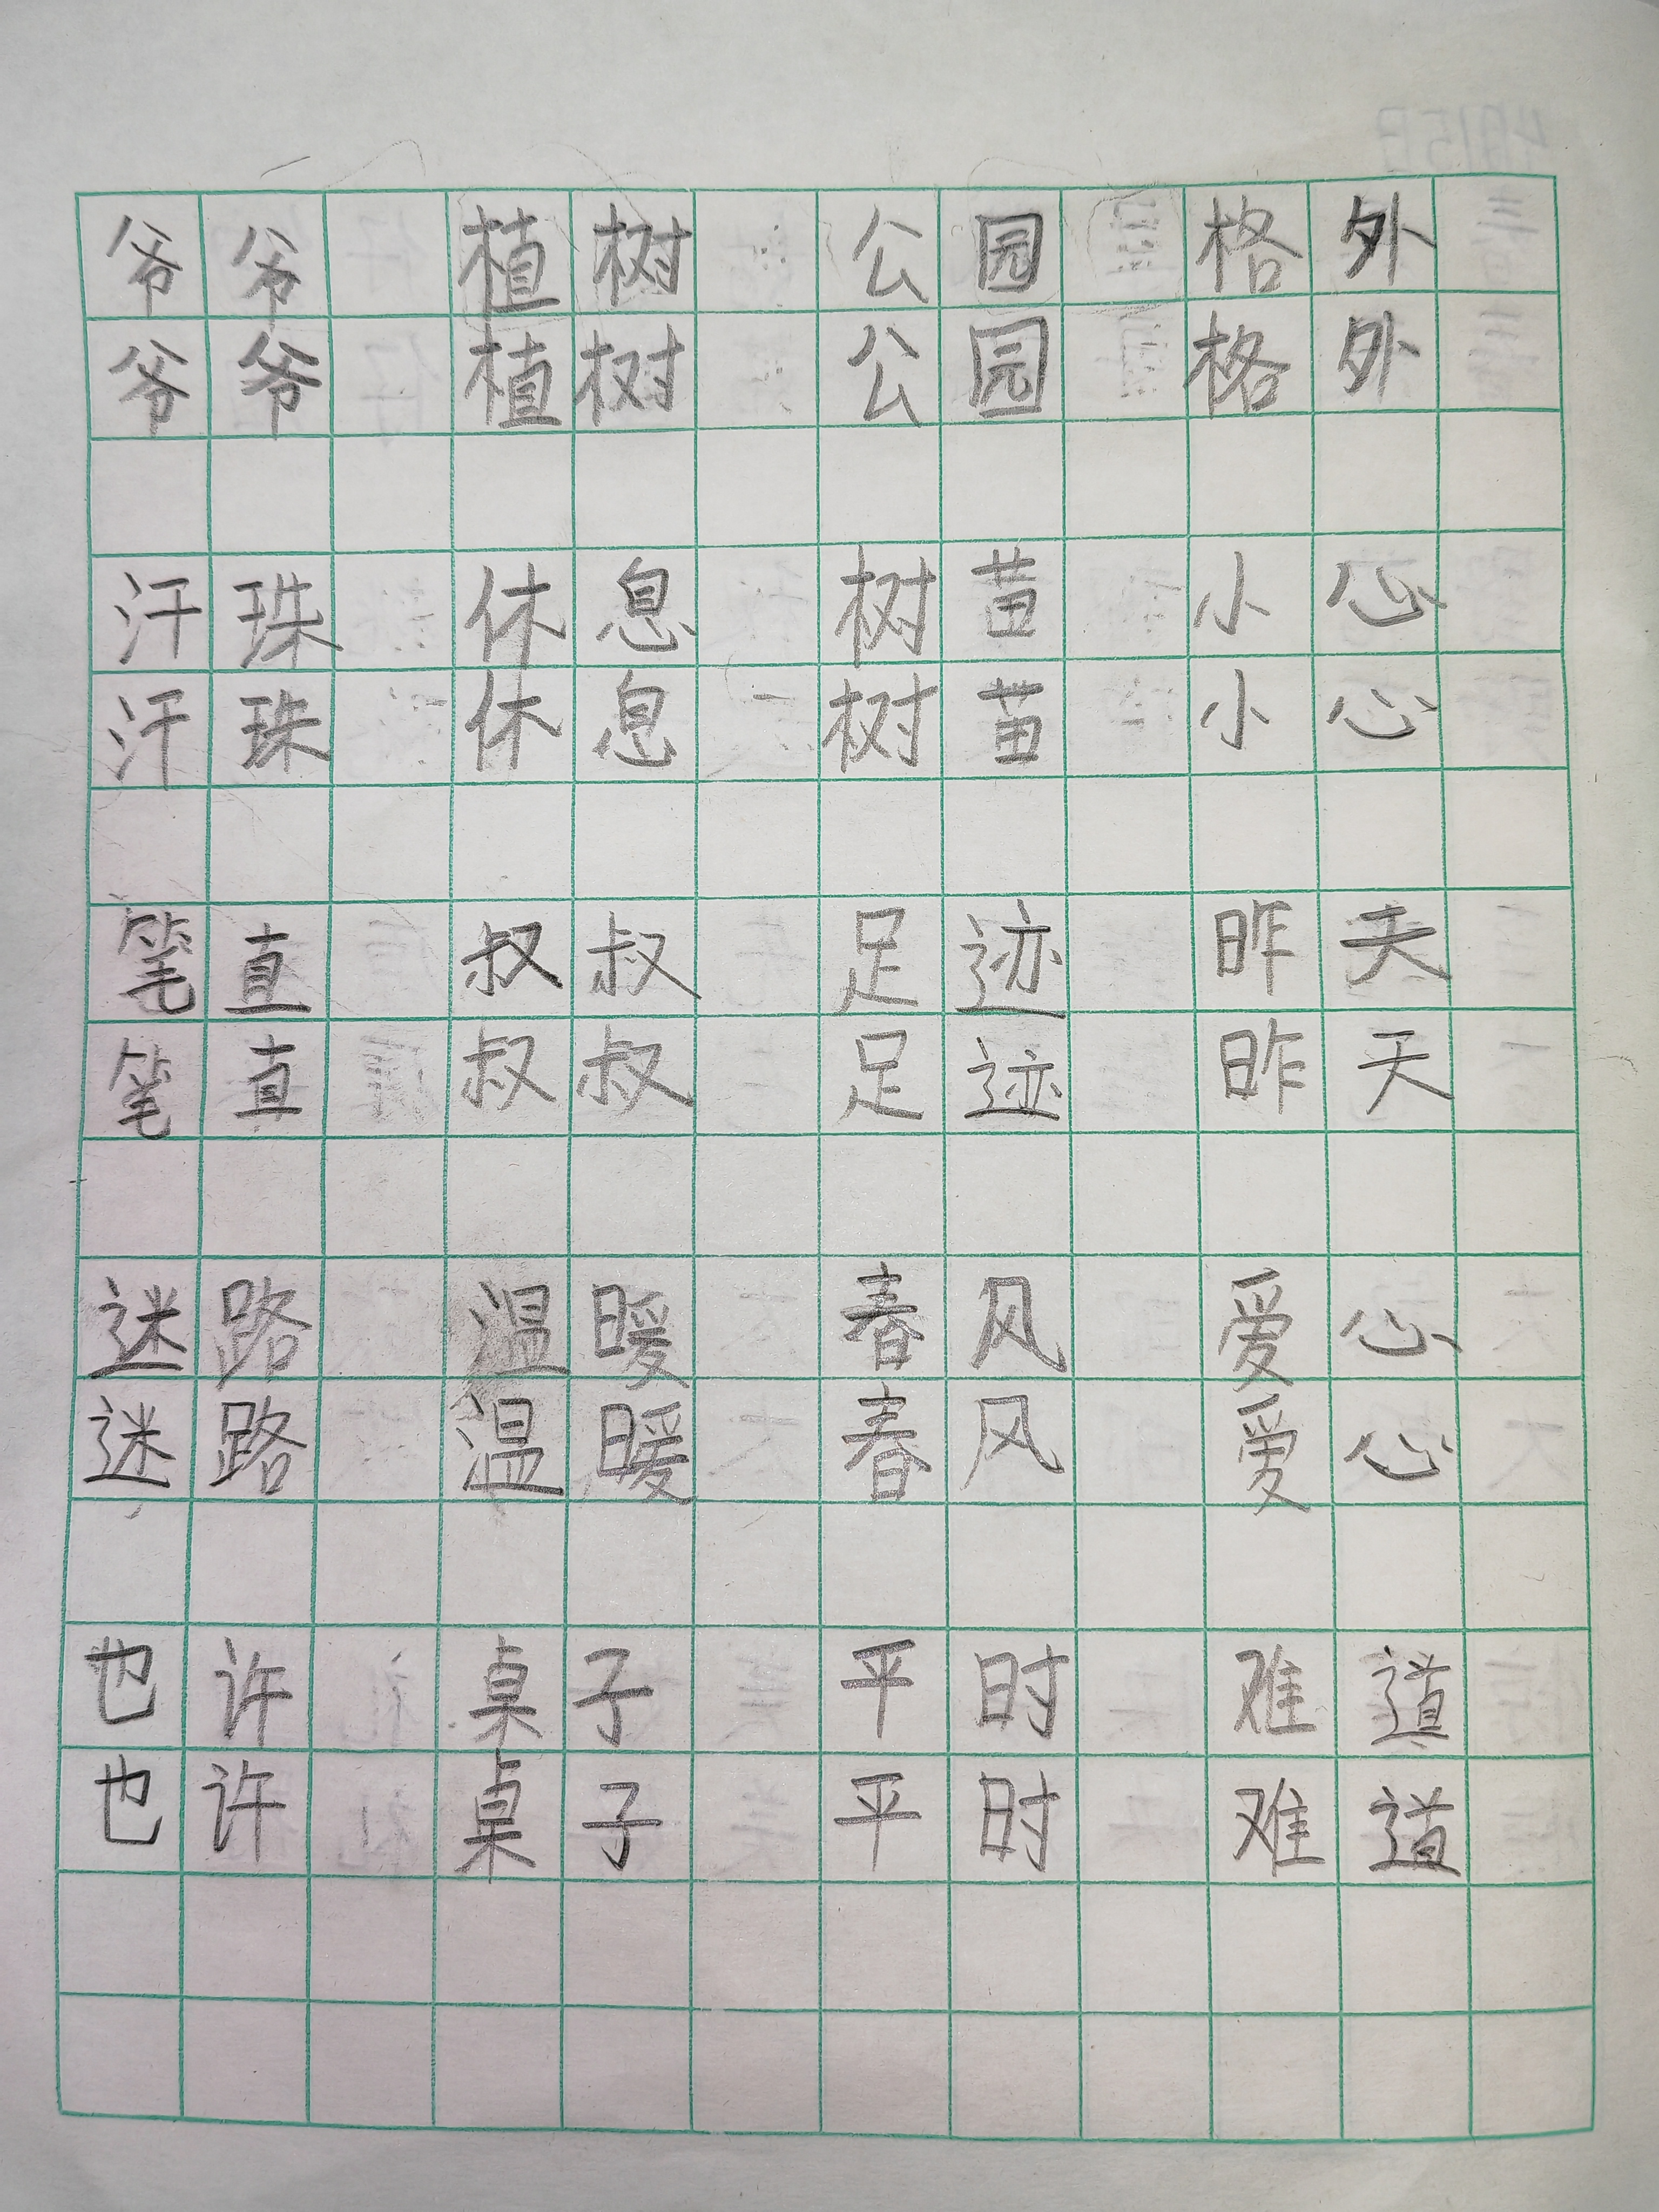 爷爷 植树 公园 格外
爷爷 植树 公园 格外
汗珠 休息 树苗 小心
汗珠 休息 树苗 小心
笔直 叔叔 足迹 昨天
笔直 叔叔 足迹 昨天
迷路 温暖 春风 爱心
迷路 温暖 春风 爱心
也许 桌子 平时 难道
也许 桌子 平时 难道